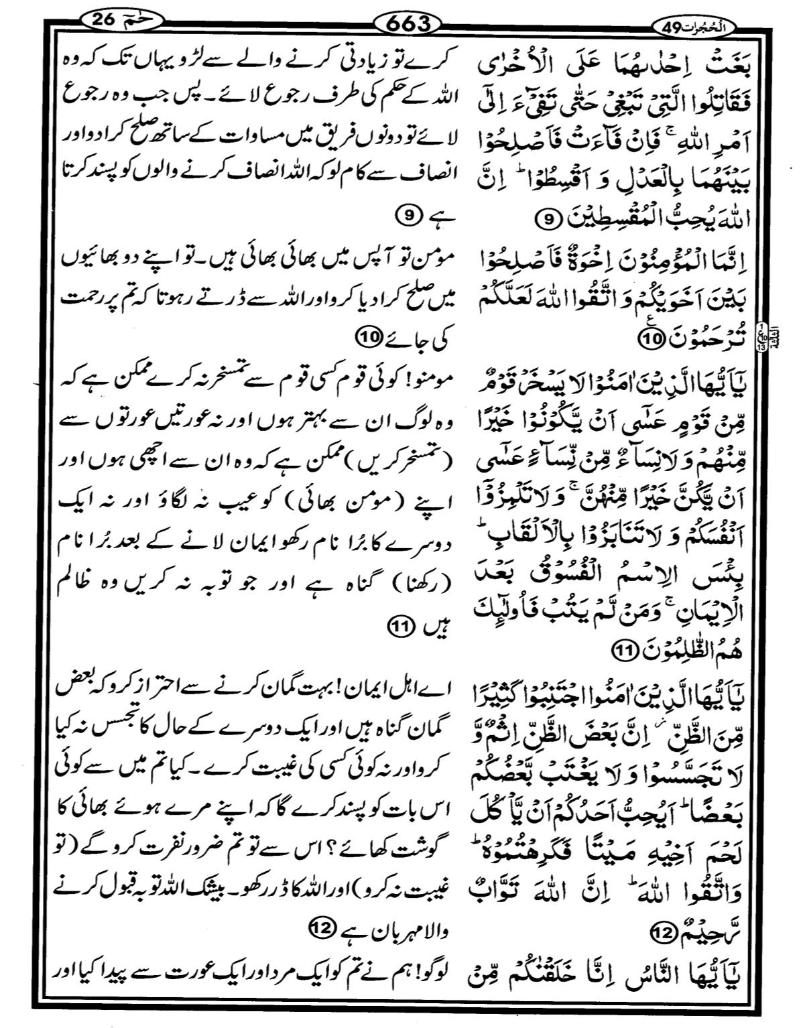 الْحُجُرٰت 49
663
حٰمٓ 26
بَغَتْ اِحْدٰىهُمَا عَلَى الْاُخْرٰى
فَقَاتِلُوا الَّتِىْ تَبْغِىْ حَتّٰى تَفِىْٓءَ اِلٰٓى
اَمْرِ اللّٰهِ ۚ فَاِنْ فَآءَتْ فَاَصْلِحُوْا
بَيْنَهُمَا بِالْعَدْلِ وَ اَقْسِطُوْا ؕ اِنَّ
اللّٰهَ يُحِبُّ الْمُقْسِطِيْنَ 9
اِنَّمَا الْمُؤْمِنُوْنَ اِخْوَةٌ فَاَصْلِحُوْا
بَيْنَ اَخَوَيْكُمْ وَ اتَّقُوا اللّٰهَ لَعَلَّكُمْ
تُرْحَمُوْنَ ع 10
يٰۤاَيُّهَا الَّذِيْنَ اٰمَنُوْا لَا يَسْخَرْ قَوْمٌ
مِّنْ قَوْمٍ عَسٰٓى اَنْ يَّكُوْنُوْا خَيْرًا
مِّنْهُمْ وَ لَا نِسَآءٌ مِّنْ نِّسَآءٍ عَسٰٓى
اَنْ يَّكُنَّ خَيْرًا مِّنْهُنَّ ۚ وَ لَا تَلْمِزُوْۤا
اَنْفُسَكُمْ وَ لَا تَنَابَزُوْا بِالْاَلْقَابِ ؕ
بِئْسَ الِاسْمُ الْفُسُوْقُ بَعْدَ
الْاِيْمَانِ ۚ وَ مَنْ لَّمْ يَتُبْ فَاُولٰٓئِكَ
هُمُ الظّٰلِمُوْنَ 11
يٰۤاَيُّهَا الَّذِيْنَ اٰمَنُوا اجْتَنِبُوْا كَثِيْرًا
مِّنَ الظَّنِّ ؗ اِنَّ بَعْضَ الظَّنِّ اِثْمٌ وَّ
لَا تَجَسَّسُوْا وَ لَا يَغْتَبْ بَّعْضُكُمْ
بَعْضًا ؕ اَيُحِبُّ اَحَدُكُمْ اَنْ يَّاْكُلَ
لَحْمَ اَخِيْهِ مَيْتًا فَكَرِهْتُمُوْهُ ؕ
وَ اتَّقُوا اللّٰهَ ؕ اِنَّ اللّٰهَ تَوَّابٌ
رَّحِيْمٌ 12
يٰۤاَيُّهَا النَّاسُ اِنَّا خَلَقْنٰكُمْ مِّنْ
کرے تو زیادتی کرنے والے سے لڑو یہاں تک کہ وہ
اللہ کے حکم کی طرف رجوع لائے۔ پس جب وہ رجوع
لائے تو دونوں فریق میں مساوات کے ساتھ صلح کرا دو اور
انصاف سے کام لو کہ اللہ انصاف کرنے والوں کو پسند کرتا
ہے 9
مومن تو آپس میں بھائی بھائی ہیں۔ تو اپنے دو بھائیوں
میں صلح کرا دیا کرو اور اللہ سے ڈرتے رہو تا کہ تم پر رحمت
کی جائے 10
مومنو! کوئی قوم کسی قوم سے تمسخر نہ کرے ممکن ہے کہ
وہ لوگ ان سے بہتر ہوں اور نہ عورتیں عورتوں سے
(تمسخر کریں) ممکن ہے کہ وہ ان سے اچھی ہوں اور
اپنے (مومن بھائی) کو عیب نہ لگاؤ اور نہ ایک
دوسرے کا بُرا نام رکھو ایمان لانے کے بعد بُرا نام
(رکھنا) گناہ ہے اور جو توبہ نہ کریں وہ ظالم
ہیں 11
اے اہل ایمان! بہت گمان کرنے سے احتراز کرو کہ بعض
گمان گناہ ہیں اور ایک دوسرے کے حال کا تجسس نہ کیا
کرو اور نہ کوئی کسی کی غیبت کرے۔ کیا تم میں سے کوئی
اس بات کو پسند کرے گا کہ اپنے مرے ہوئے بھائی کا
گوشت کھائے؟ اس سے تو تم ضرور نفرت کرو گے (تو
غیبت نہ کرو) اور اللہ کا ڈر رکھو۔ بیشک اللہ توبہ قبول کرنے
والا مہربان ہے 12
لوگو! ہم نے تم کو ایک مرد اور ایک عورت سے پیدا کیا اور